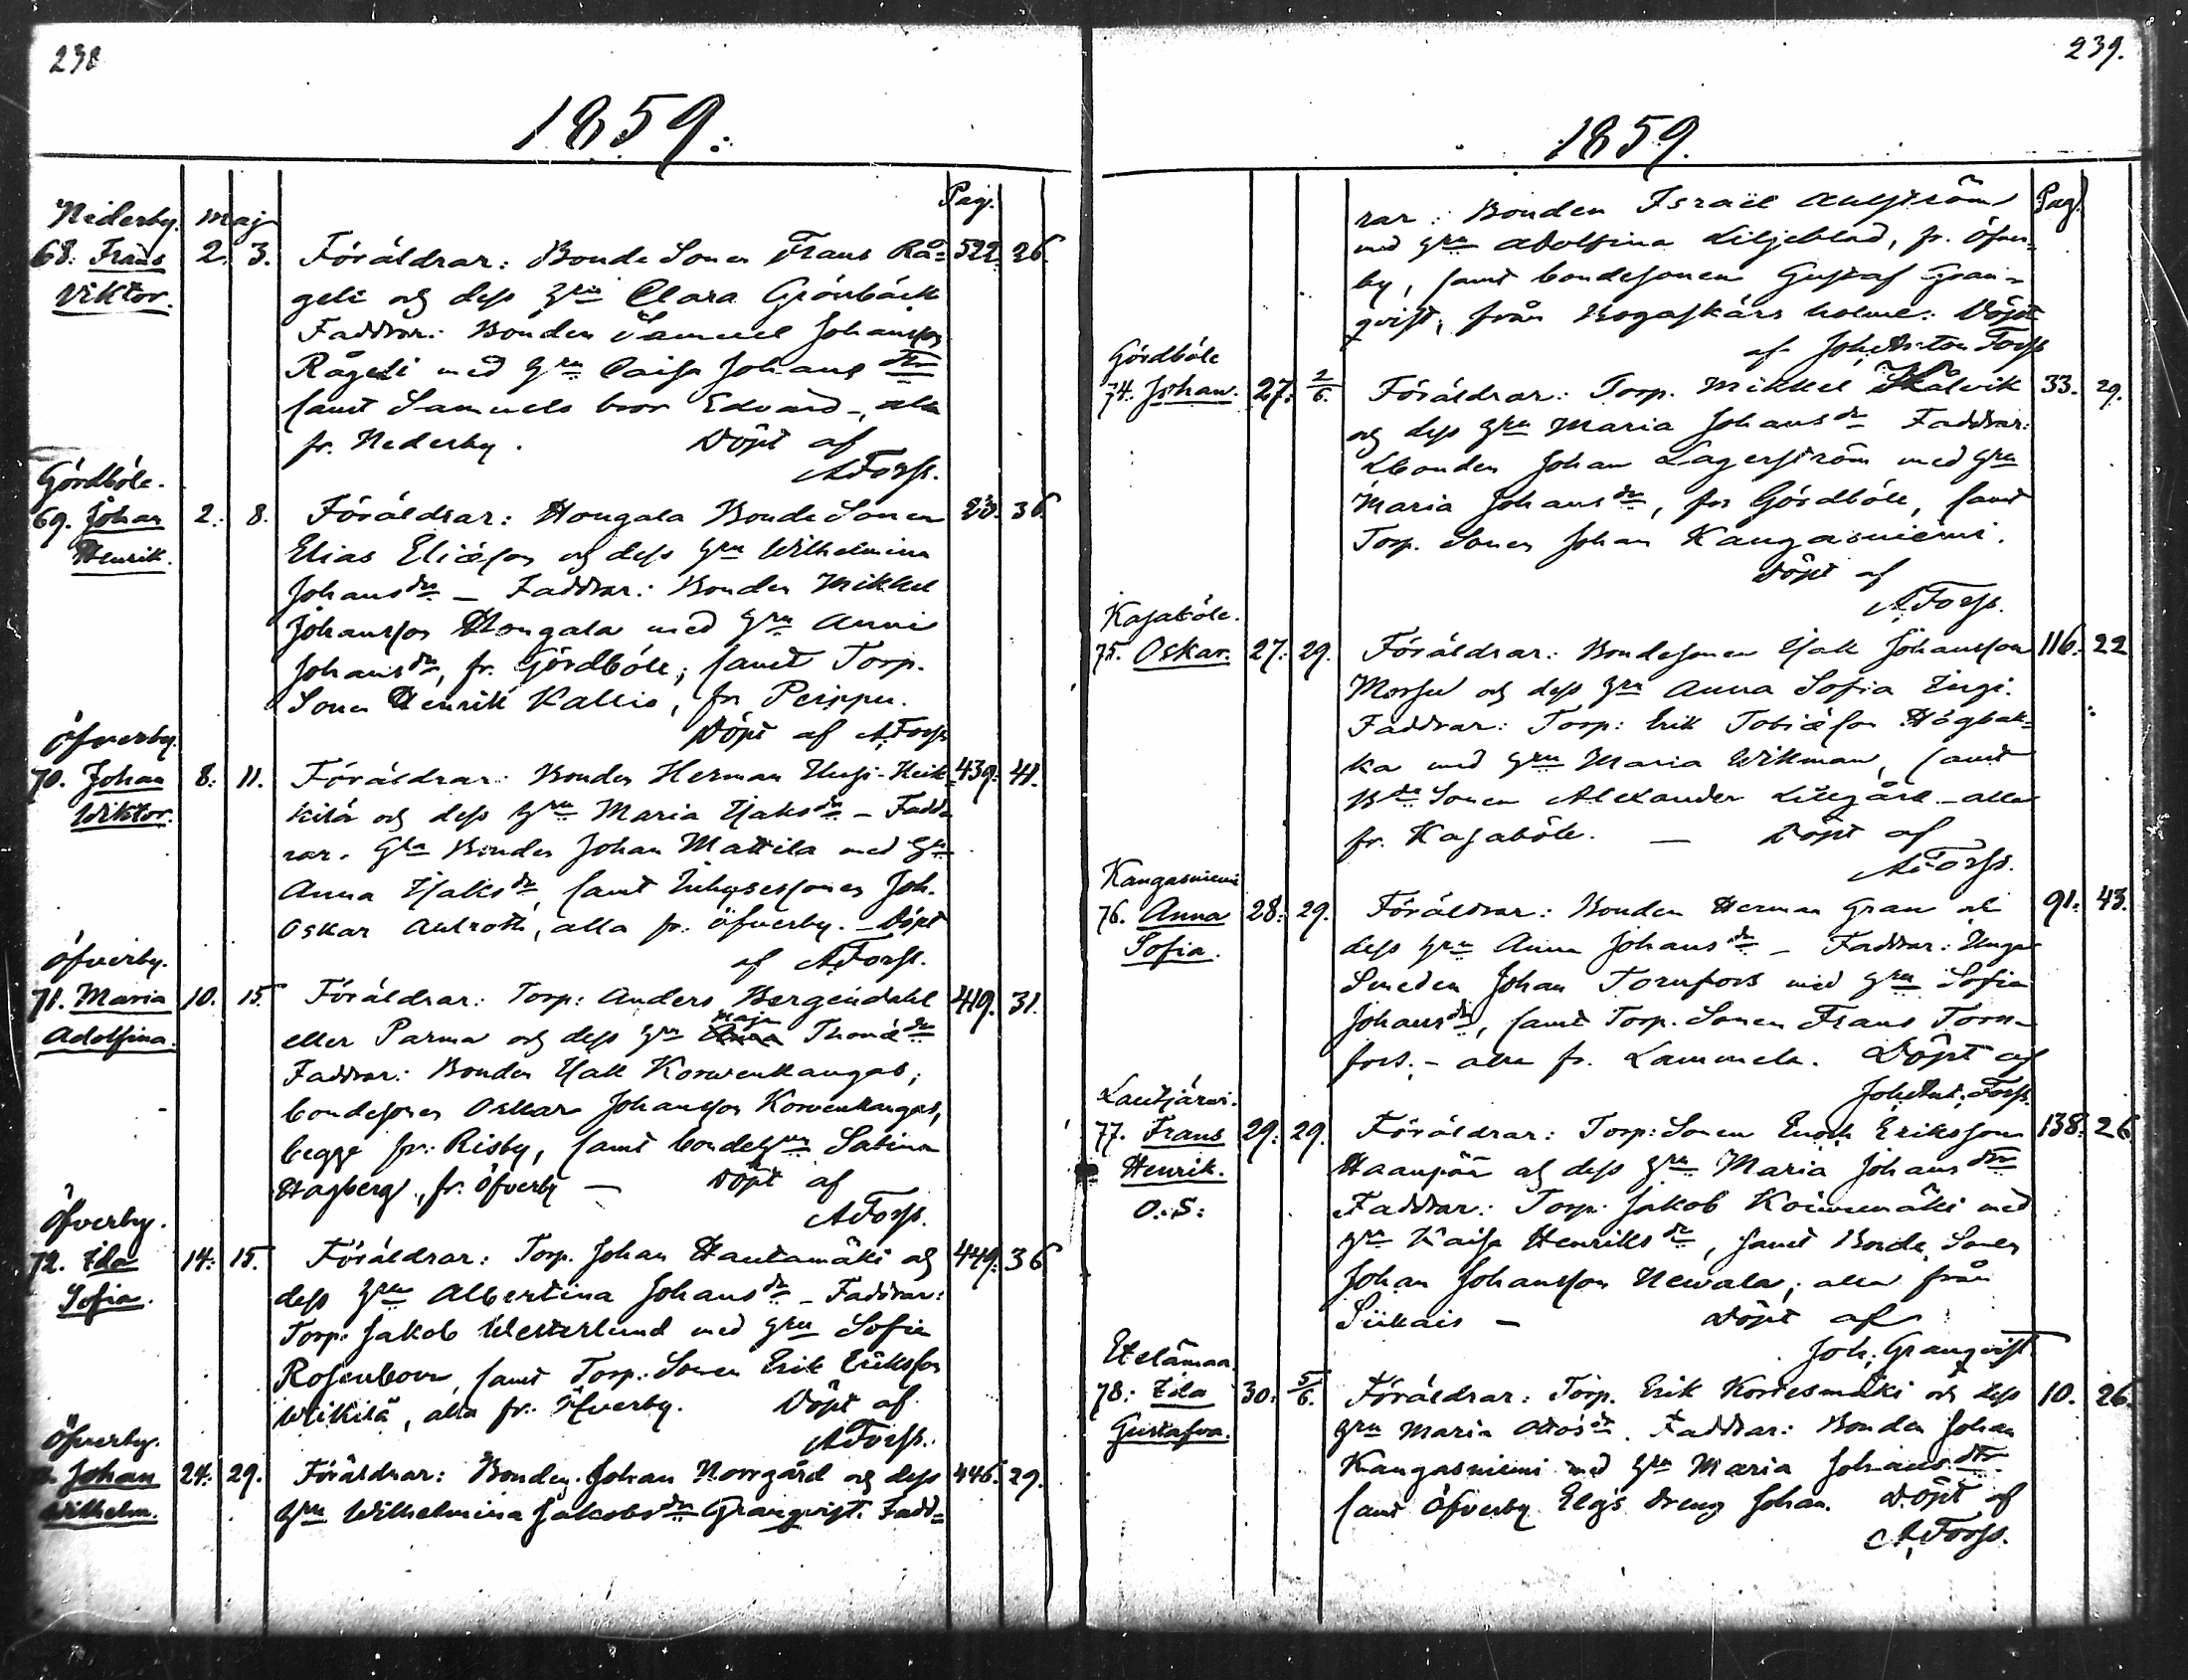 238
1859.
Pag.
Nederby. Maj
68. Frans 2. 3. Föräldrar: Bonde Sonen Frans Rå- 522. 26.
Viktor. geli och dess Hru Clara Grönbäck
Faddrar: Bonden Samuel Johansson
Rågeli med Hru Caisa Johans Dr
samt Samuels bror Edvard, alla
fr. Nederby. Döpt af
A Forss.
Gördböle.
69. Johan 2. 8. Föräldrar: Hongala Bonde Sonen 36.
Henrik. Elias Eliæson och dess Hru Wilhelmina
Johansdr – Faddrar: Bonden Mikkel
Johansson Hongala med Hru Anni
Johansdr, fr. Gördböle, samt Torp.
Sonen Henrik Kallio, fr Peippu.
Döpt af A. Forss
Öfverby.
70. Johan 8. 11. Föräldrar: Bonden Herman Uusi-Heik- 439. 41.
Wiktor. kilä och dess Hru Maria Isaksdr – Fadd-
rar. Gla Bonden Johan Mattila med Hru
Anna Isaksdr, samt Inhysessonen Joh.
Oskar Antroth, alla fr. Öfverby. – Döpt
af A. Forss.
Öfverby.
71. Maria 10. 15. Föräldrar: Torp: Anders Bergendahl 419. 31.
Adolfina. eller Parma och dess Hru Maja Thomædr
Faddrar: Bonden Isak Korwenkangas;
bondesonen Oskar Johansson Korvenkangas,
begge fr. Risby, samt bondehrun Sabina
Hagberg, fr. Öfverby – Döpt af
A Forss.
Öfverby.
72. Ida 14. 15. Föräldrar: Torp. Johan Hautamäki och 449. 36
Sofia. dess Hru Albertina Johansdr – Faddrar:
Torp: Jakob Westerlund med Hru Sofia
Rosenbom, samt Torp. Sonen Erik Eriksson
Wikilä, alla fr. Öfverby. Döpt af
A Forss.
Öfverby.
Johan 24. 29. Föräldrar: Bonden Johan Norrgård och dess 446. 29.
Wilhelm. Hru Wilhelmina Jakobsdr Granqvist. Fadd-
239.
1859.
Pag.
rar: Bonden Israël Ahlström
med Hru Adolfina Liljeblad, fr. Öfver-
by, samt bondesonen Gustaf Gran-
qvist, från Bogaskärs holme. Döpt
af Joh. Anton Forss
Gördböle
74. Johan. 27. 2/6. Föräldrar: Torp. Mikkel Skålvik 33. 29.
och dess Hru Maria Johansdr Faddrar:
Lbonden Johan Lagerström med Hru
Maria Johansdr, från Gördböle, samt
Torp. Sonen Johan Kangasniemi.
Döpt af
A Forss.
Kasaböle.
75. Oskar. 27. 29. Föräldrar: Bondesonen Isak Johansson 116. 22
och dess Hru Anna Sofia Ingi.
Faddrar: Torp: Erik Tobiæson Högbak-
ka med Hru Maria Wikman, samt
Bde Sonen Alexander Lillgård – alla
fr. Kasaböle. – Döpt af
A Forss.
Kangasniemi
76. Anna 28. 29. Föräldrar: Bonden Herman Gran och 91. 43.
Sofia. dess Hru Anna Johansdr – Faddrar: Unga
Smeden Johan Tornfors med Hru Sofia
Johansdr, samt Torp. Sonen Frans Torn-
fors. – alla fr. Lammela. Döpt af
Joh. Ant. Forss.
Lautjärvi.
77. Frans 29. 29. Föräldrar: Torp: Sonen Enoch Eriksson 138. 26
Henrik. Haanpää och dess Hru Maria Johansdtr
O.S: Faddrar: Torp. Jakob Koiwumäki med
Hru Kaisa Henriksdr, samt Bonde Sonen
Johan Johansson Newala, alla från
Siikais – Döpt af
Joh. Granqvist
Etelämaa.
78. Ida 30. 5/6. Föräldrar: Torp. Erik Koriesmäki och dess 10. 26.
Gustafva. Hru Maria Ottosdr. Faddrar: Bonden Johan
Kangasniemi med Hru Maria Johansdtr
samt Öfverby Elgs dreng Johan. Döpt af
A. Forss.